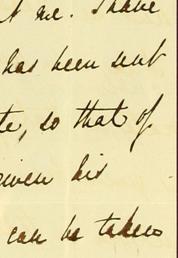 t me. I have
has been sent
te, so that of
iven his
can be taken